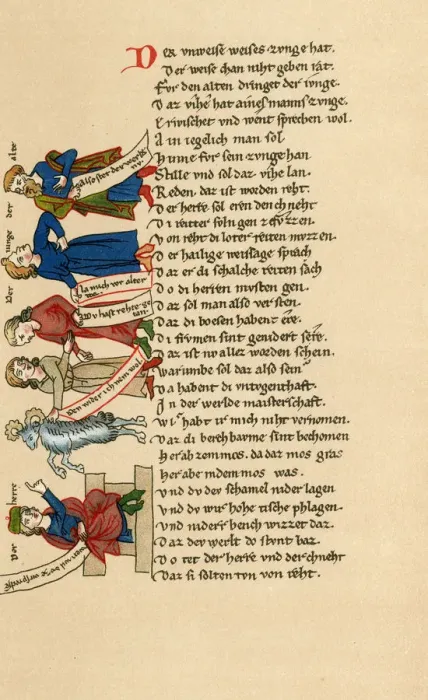 Der vnweise weises zvnge hat.
Der weise chan niht geben rat.
For den alten dringet der ivnge.
Daz vihe hat aines manns zvnge.
Erwischet vnd went sprechen wol.
Ain iegelich man sol
Hinne for sein zvnge han
Stille vnd sol daz vihe lan.
Reden. daz ist worden reht.
Der herre sol eren den chneht
Di reitter soln gen ze fvzzen.
Von reht di loter reiten mvzzen.
Der hailige weissage sprach
Daz er di schalche reiten sach
Do di herren mvsten gen.
Daz sol man also versten.
Daz di boesen habent ere.
Di frvmen sint genidert sere.
Daz ist nv allez worden schein.
Warvmbe sol daz also sein
Da habent di vntvgenthaft.
In der werlde maisterschaft.
Wi habt ir mich niht vernomen.
Daz di herehbarme sint bechomen
Her ab zommos. da daz mos gras
Her abe in dem mos was.
Vnd dv der schamel nider lagen
Vnd dv wir hohe tische phlagen.
Vnd nidere bench wizzet daz.
Daz der werlt do stvnt baz.
Do tet der herre vnd der chneht
Daz si solten tvn von reht.
Der alter
also ster der werlt
Der ivnge
la mich vvr alter
Dv hast rehte ge
tan.
Den wider ich nem wol
Der herre